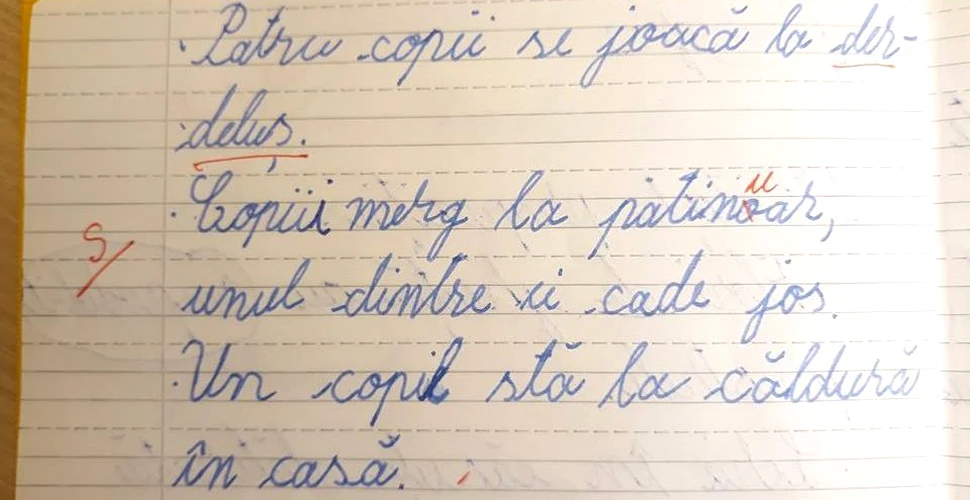 Patru copii se joacă la der-
deluș.
u
Copiii merg la patinoar,
S/
unul dintre ei cade jos.
Un copil stă la căldură
în casă.